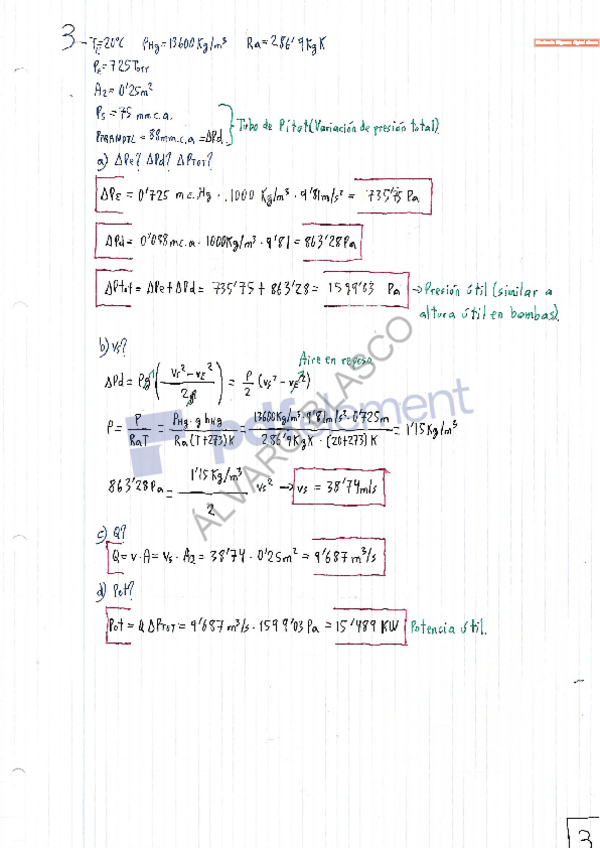 3- TE=20ºC ρHg=13600Kg/m³ Ra=286'9KgK
PE=725Torr
A2=0'25m²
PS=75 mm.c.a.
PPRANDTL=88mm.c.a=ΔPd
Tubo de Pitot(Variación de presión total)
a) ΔPe? ΔPd? ΔPTOT?
ΔPE = 0'725 m.c.Hg . 1000 Kg/m³ . 9'81m/s² = 735'75 Pa
ΔPd = 0'088mc.a . 1000Kg/m³ . 9'81 = 863'28Pa
ΔPtot = ΔPe+ΔPd = 735'75 + 863'28 = 1599'03 Pa → Presión útil (similar a
altura útil en bombas).
b) vs?
Aire en reposo
ΔPd = ρg (vs²-vE²/2g) = ρ/2 (vs²-vE²)
ρ = P/RaT = ρHg·g hHg/Ra(T+273)K = 13600Kg/m³·9'81m/s²·0'725m/286'9KgK·(20+273)K = 1'15Kg/m³
863'28Pa = 1'15Kg/m³/2 vs² → vs = 38'74m/s
c) Q?
Q=v·A=vs·A2=38'74·0'25m²=9'687m³/s
d) Pot?
Pot=QΔPTOT=9'687m³/s·1599'03Pa=15'489 KW Potencia útil.
pdfelement
ÁLVARO BLASCO
3